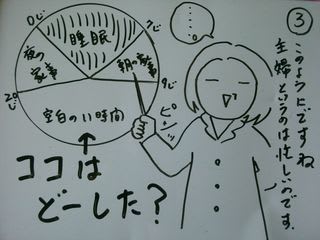 ③
このようにですね
主婦というのは忙しいのです.
……
0じ
7じ
睡眠
夜の家事
朝の家事
9じ
20じ
空白の11時間
ピシッ
ココは
どーした?